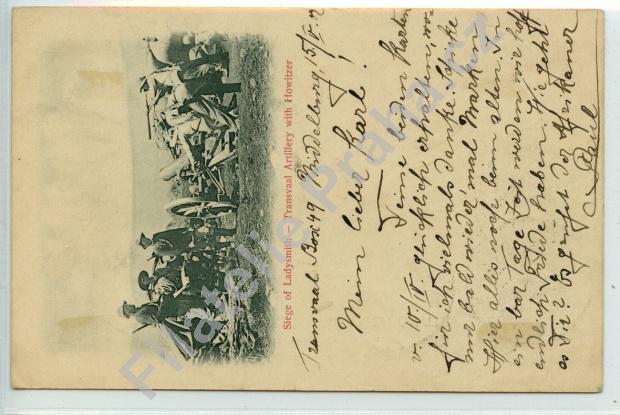 Siege of Ladysmith – Transvaal Artillery with Howitzer
Transvaal Box 49 Middelburg, 15/V. 02
Mein lieber Karl!
Deine beiden Karten
v. 10/IV glücklich erhalten, wo-
für ich vielmals danke. Schicke
nun bald wieder mal Marken.
Hier alles noch beim alten. In
ein par Tage Zeit werden wir hoff
endlich Friede haben. Wie geht
es Dir? Es grüsst der Afrikaner
Paul
Filatelie Praha.cz